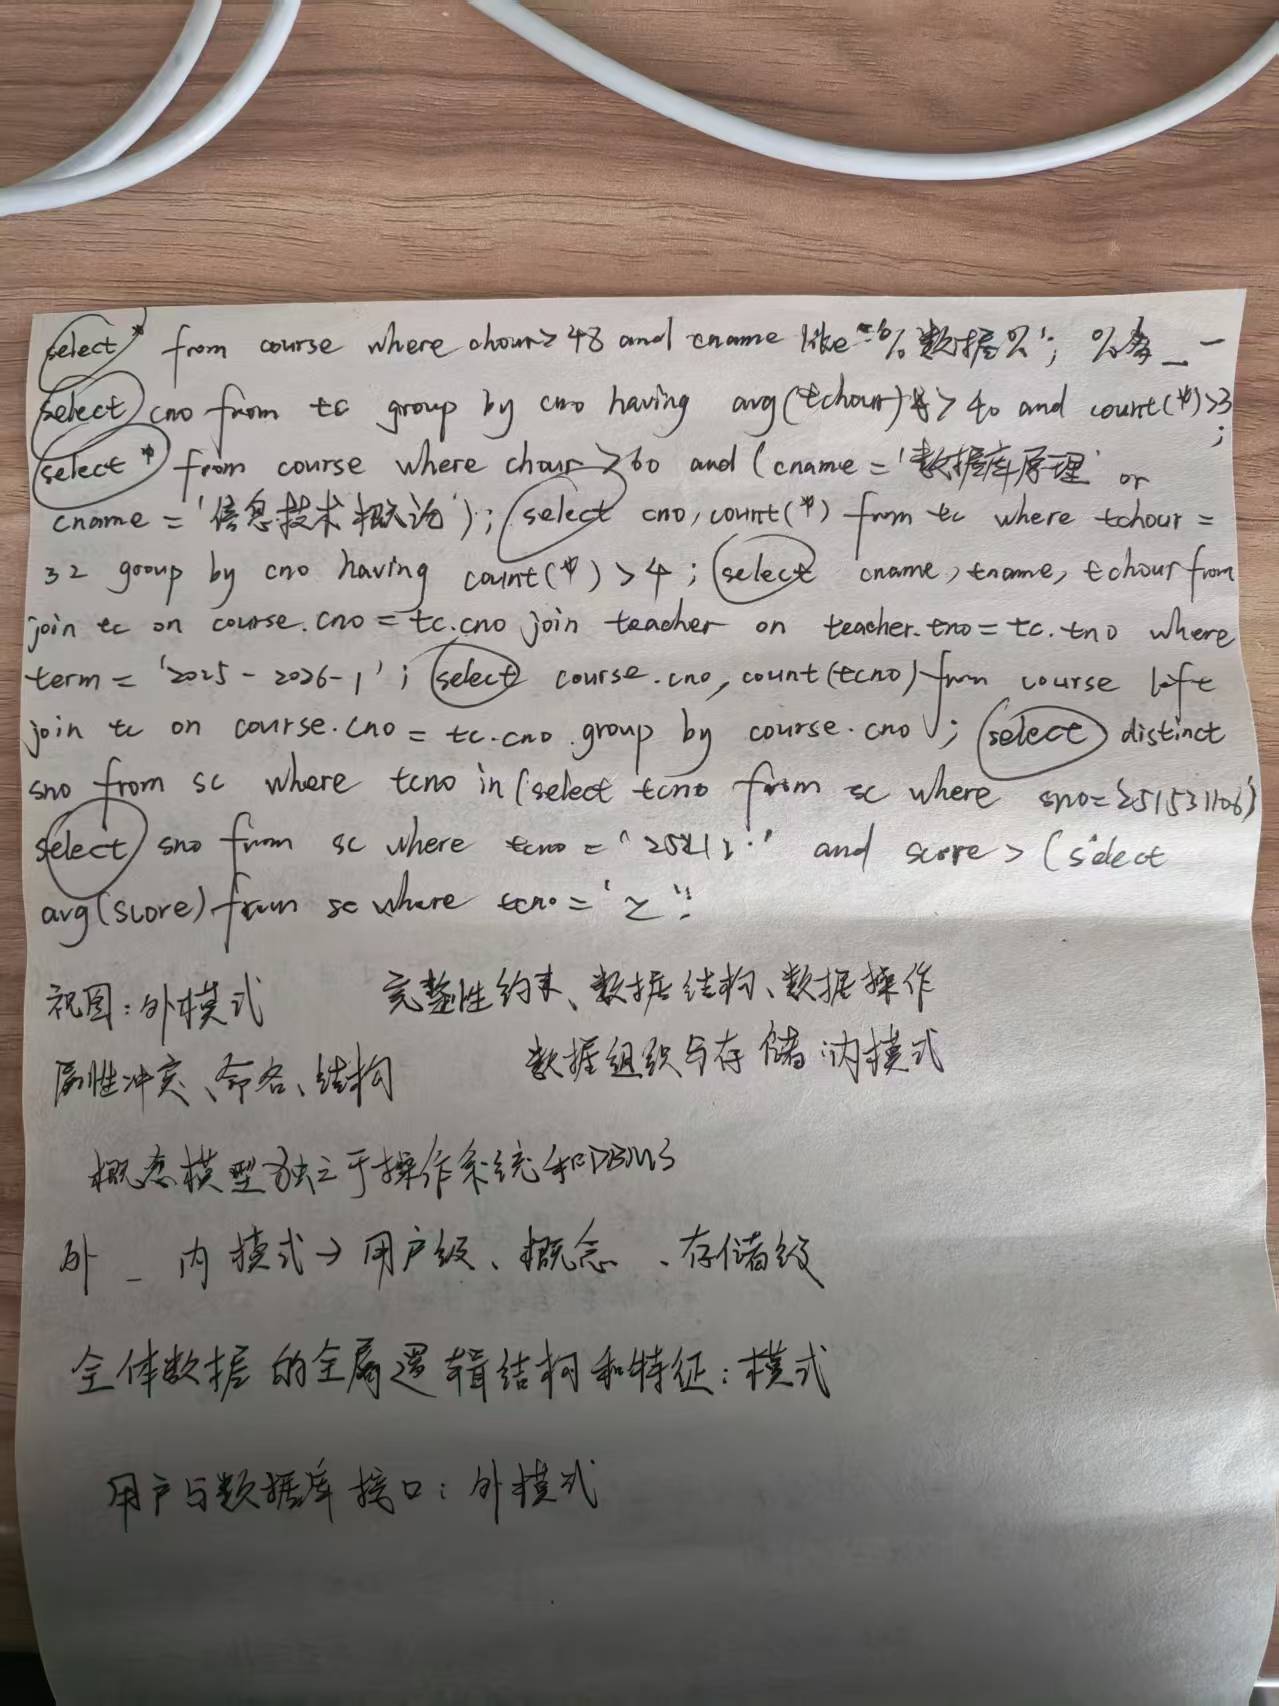 select * from course where chour≥48 and cname like '%数据%'; %多 _ 一
select cno from tc group by cno having avg(tchour) > 40 and count(*)>3;
select * from course where chour≥60 and (cname = '数据库原理' or
cname = '信息技术概论'); select cno, count(*) from tc where tchour =
32 group by cno having count(*) > 4; select cname, tname, tchour from
join tc on course.cno = tc.cno join teacher on teacher.tno = tc.tno where
term = '2025-2026-1'; select course.cno, count(tcno) from course left
join tc on course.cno = tc.cno group by course.cno; select distinct
sno from sc where tcno in (select tcno from sc where sno='251531106')
select sno from sc where tcno = ' and score > (select
avg(score) from sc where tcno = '
视图:外模式 完整性约束、数据结构、数据操作
属性冲突、命名、结构 数据组织与存储:内模式
概念模型独立于操作系统和DBMS
外 _ 内模式→用户级、概念、存储级
全体数据的全局逻辑结构和特征:模式
用户与数据库接口:外模式